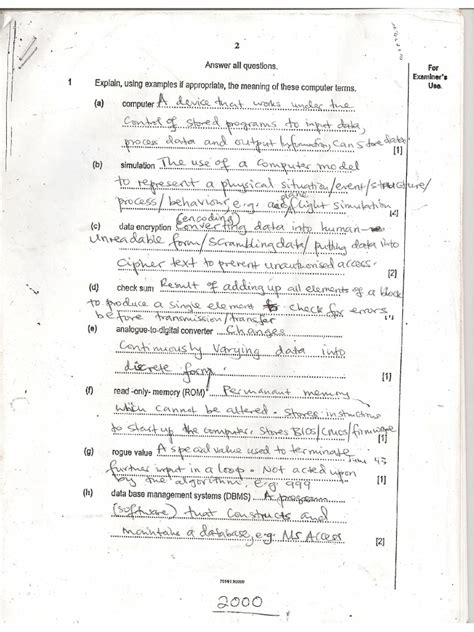 2
Answer all questions.
For
Examiner's
Use
1 Explain, using examples if appropriate, the meaning of these computer terms.
(a) computer A device that works under the
control of stored programs to input data,
process data and output information, can store data
[1]
(b) simulation The use of a computer model
to represent a physical situation/event/structure/
process/behaviour e.g. flight simulation
[2]
(encoding)
(c) data encryption Converting data into human-
unreadable form/scrambling data/putting data into
cipher text to prevent unauthorised access.
[2]
(d) check sum Result of adding up all elements of a block
to produce a single element to check for errors
before transmission/transfer
(e) analogue-to-digital converter Changes
continuously varying data into
discrete form.
[1]
(f) read-only-memory (ROM) Permanant memory
which cannot be altered. Stores instructions
to start up the computer. Stores BIOS/CMOS/firmware
[1]
(g) rogue value A special value used to terminate
further input in a loop. Not acted upon
by the algorithm. E.g 999
[1]
(h) data base management systems (DBMS) A program
(software) that constructs and
maintains a database, e.g. Ms Access
[2]
2000